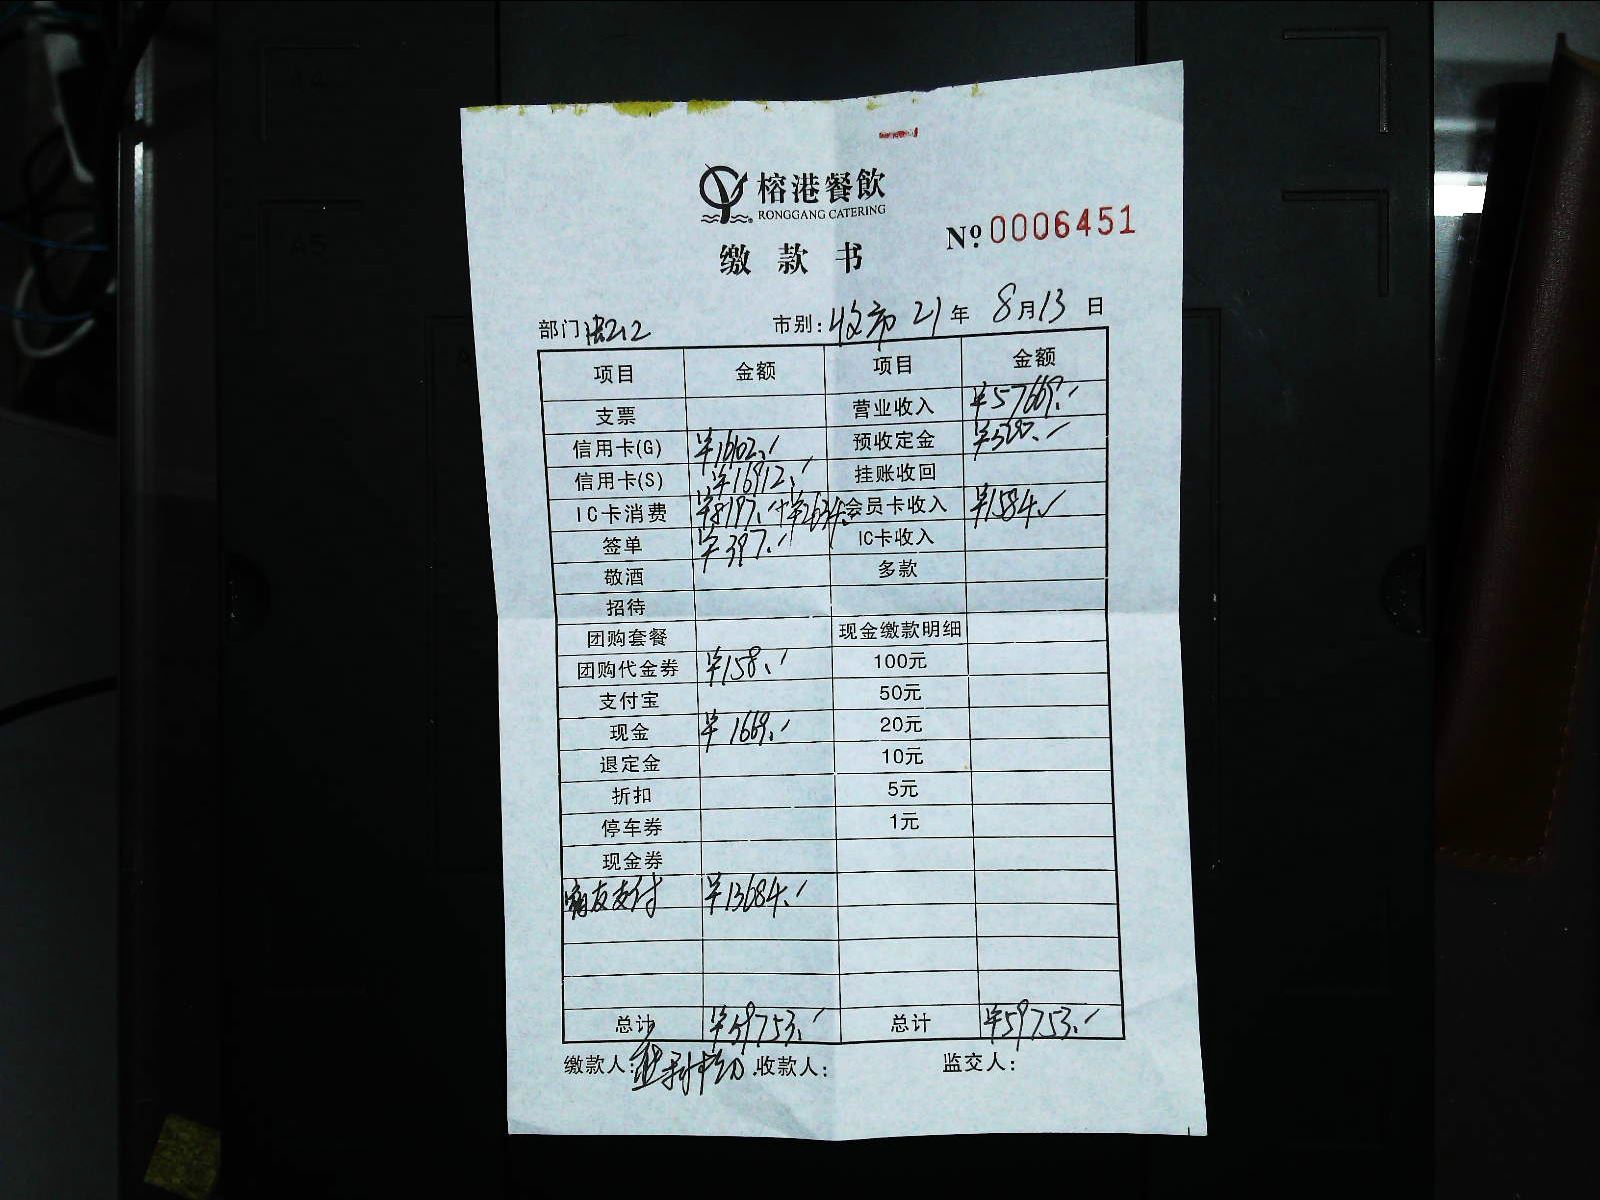 榕港餐飲
RONGGANG CATERING
缴款书
№ 0006451
部门 市别: 收市 21年 8月13日
项目 金额 项目 金额
支票 营业收入 ¥57669.
信用卡(G) 预收定金
信用卡(S) ¥16912. 挂账收回
IC卡消费 会员卡收入 ¥1584.
签单 ¥397. IC卡收入
敬酒 多款
招待
团购套餐 现金缴款明细
团购代金券 ¥158. 100元
支付宝 50元
现金 ¥1669. 20元
退定金 10元
折扣 5元
停车券 1元
现金券
支付 ¥13684.
总计 ¥59753. 总计 ¥59753.
缴款人: 收款人: 监交人: